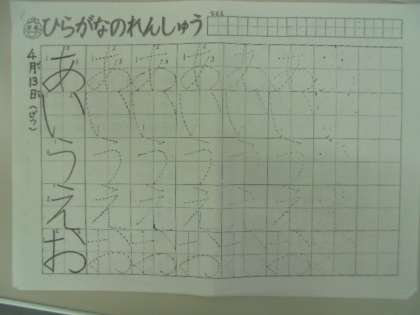 ひらがなのれんしゅう
4月13日(げつ)
あ あ あ あ あ
い い い い い
う う う う う
え え え え え
お お お お お